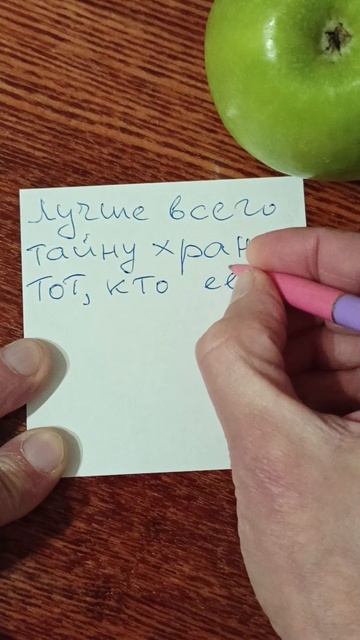 Лучше всего
тайну хран
Тот, кто её